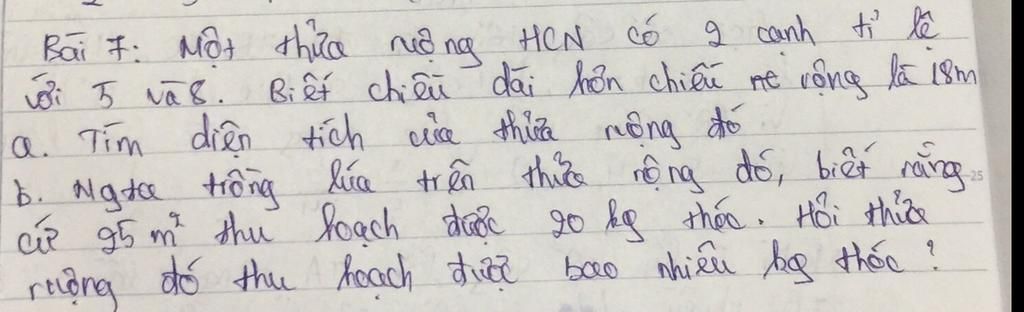 Bài 7: Một thửa ruộng HCN có 2 cạnh tỉ lệ
với 5 và 8. Biết chiều dài hơn chiều rộng là 18m
a. Tìm diện tích của thửa ruộng đó
b. Ngta trồng lúa trên thửa ruộng đó, biết rằng
cứ 25 m² thu hoạch được 20 kg thóc. Hỏi thửa
ruộng đó thu hoạch được bao nhiêu kg thóc?